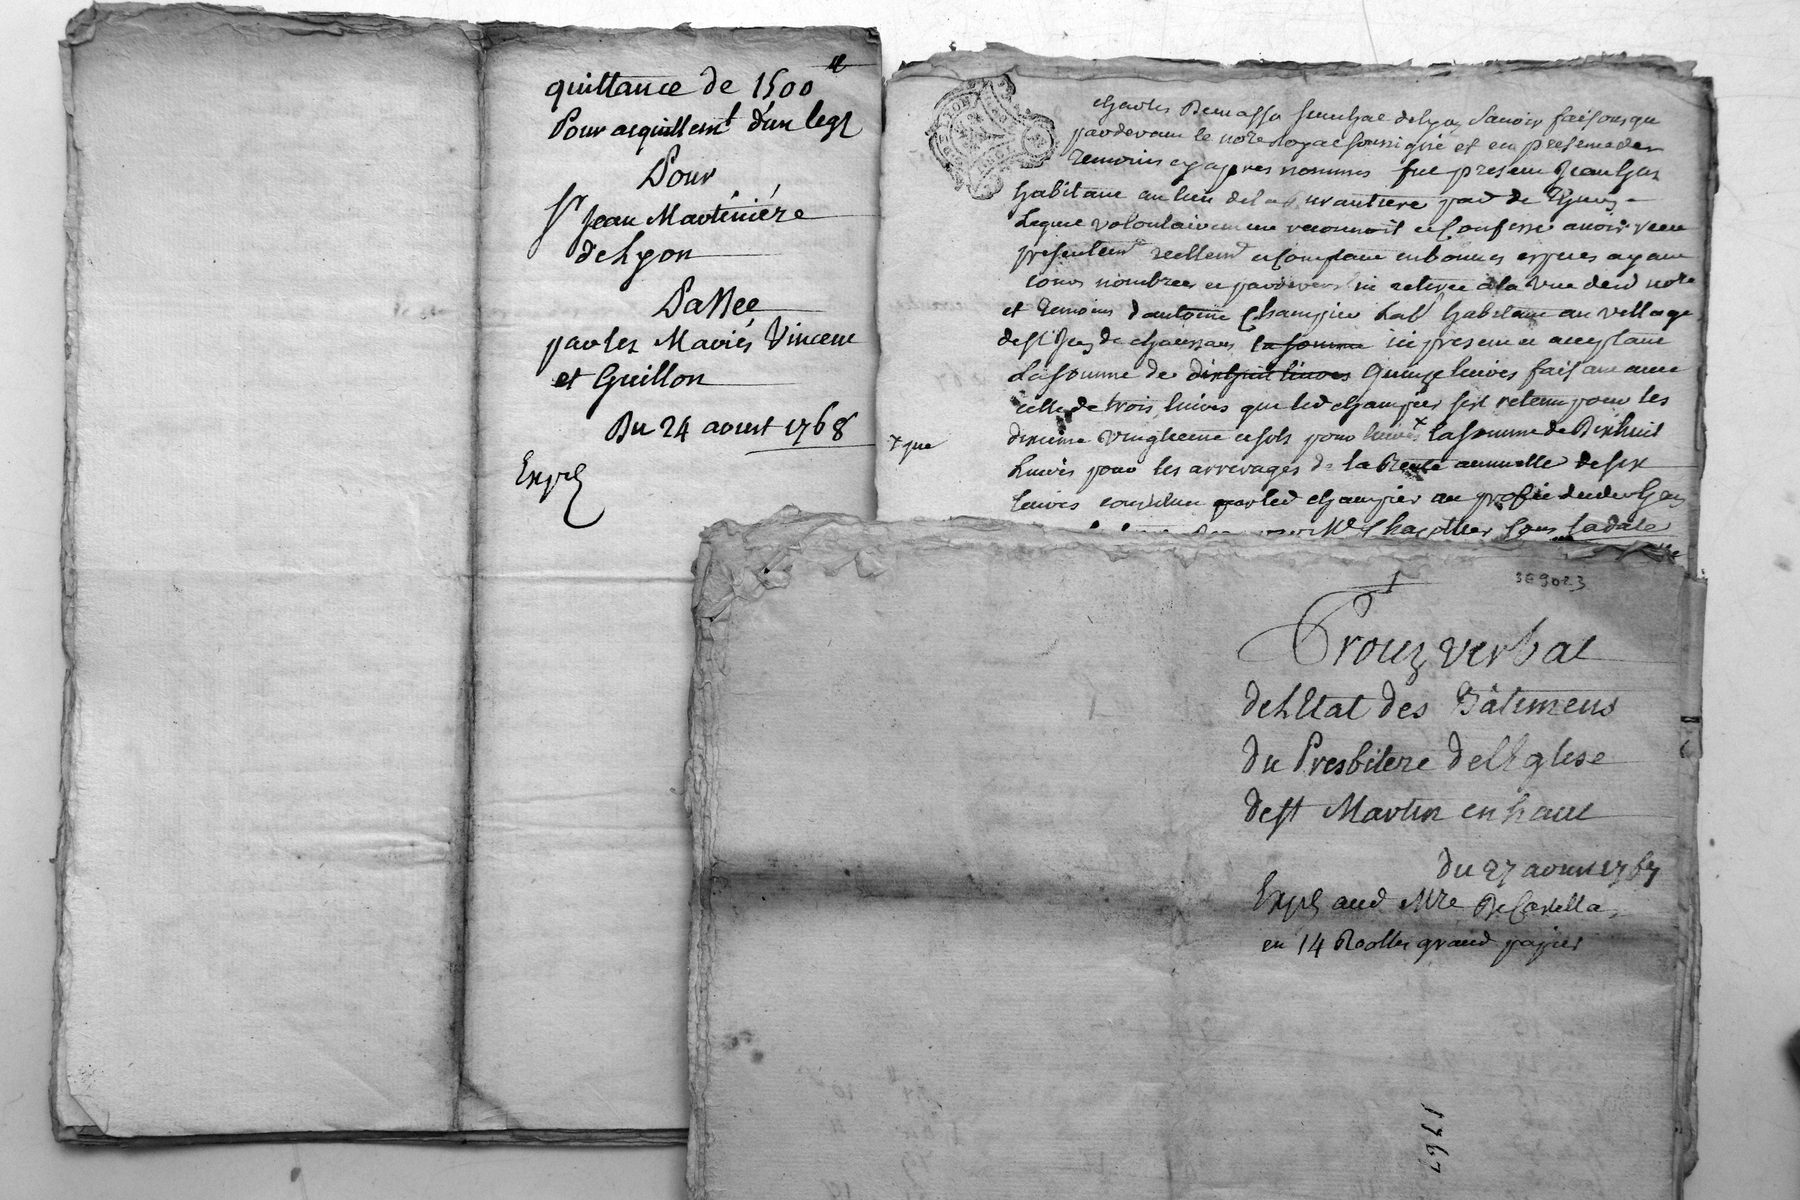 quittance de 1500 ₶
Pour acquittemt d'un legt
Pour
Sr Jean Martiniére
de Lyon
Passee
par les Mariés Vincent
et Guillon
Du 24 aoust 1768
Expé
Charles De massa senechal de Lyon savoir faisons que
pardevant le notre royal soussigné et en presence des
temoins cy apres nommes fut present Jean
habitant au lieu de la par de
Lequel volontairement reconnoit et Confesse avoir reçu
presentemt reellemt et Comptant en bonnes especes ayant
cours nombrees et par devers lui retiree a la vue dud notre
et temoins d'antoine Champier habitant au village
de st de chaussan la somme ici present et acceptant
La somme de dixhuit livres Quinze livres faisant avec
celle de trois livres que led champier s'est retenu pour les
dixieme vingtieme et sols pour livres + la somme de Dixhuit
+ que
Livres pour les arrerages de la Rente annuelle de six
livres par led champier au profit dud
Me sous la date
3E9023
Proces verbal
de L'Etat des Bâtimens
du Presbitere de l'Eglise
de st Martin en haut
du 27 aoust 1767
Expé aud Mre De Castella
en 14 Roolles grand papier
1767